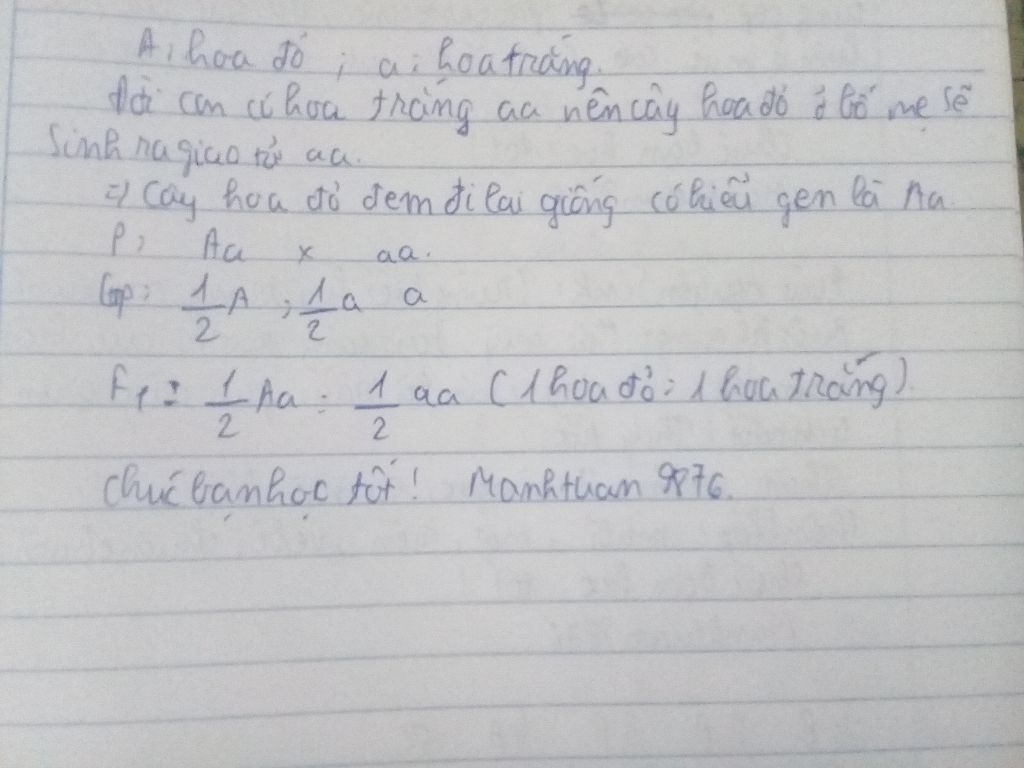 A: hoa đỏ ; a: hoa trắng.
Đời con có hoa trắng aa nên cây hoa đỏ ở bố mẹ sẽ
sinh ra giao tử aa.
=> Cây hoa đỏ đem đi lai giống có kiểu gen là Aa
P: Aa x aa.
Gp: 1/2 A ; 1/2 a a
F1: 1/2 Aa : 1/2 aa (1 hoa đỏ : 1 hoa trắng).
Chúc bạn học tốt! Manhtuan 9876.